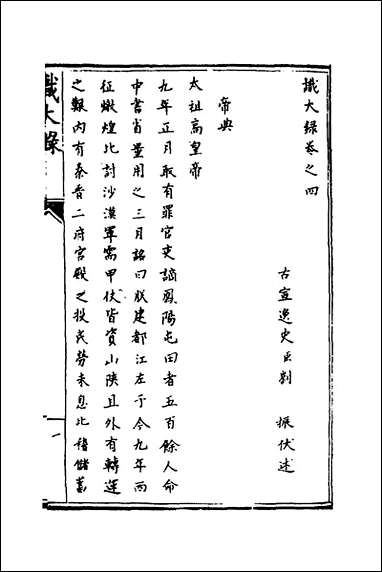 識大録卷之四
古宣逸史臣劉 振伏述
帝典
太祖高皇帝
九年正月取有罪官吏謫鳳陽屯田者五百餘人命
中書省量用之三月詔曰朕建都江左于今九年西
征燉煌北討沙漠軍需甲仗皆資山陝且外有轉運
之艱內有秦晉二府宮殿之役民勞未息比稽儲蓄
識大錄